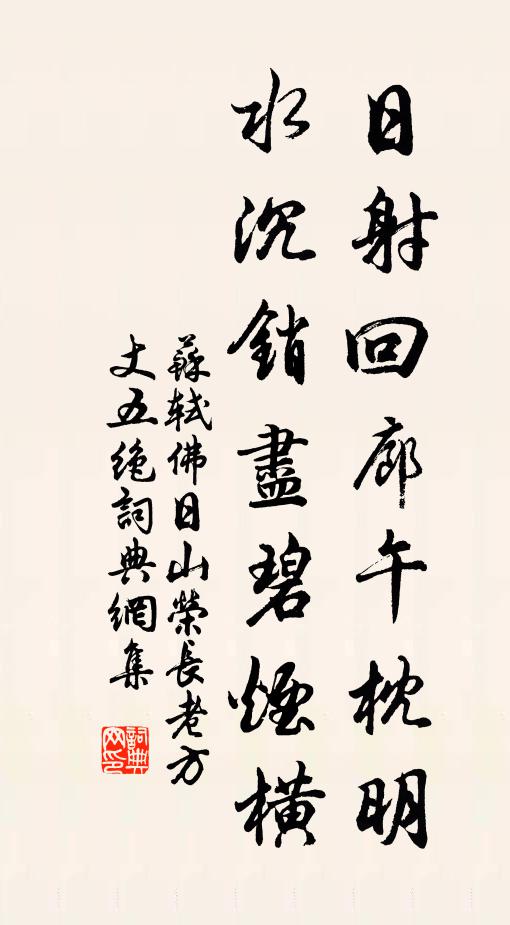 日射回廊午枕明
水沉銷盡碧煙橫
蘇軾佛日山榮長老方
丈五絶詞典網集
詞典網印